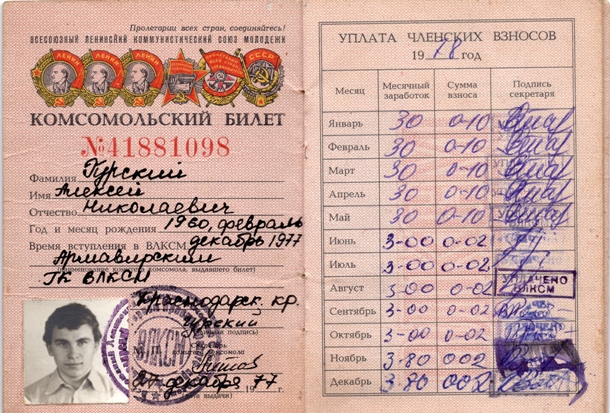 Пролетарии всех стран, соединяйтесь!
ВСЕСОЮЗНЫЙ ЛЕНИНСКИЙ КОММУНИСТИЧЕСКИЙ СОЮЗ МОЛОДЕЖИ
КОМСОМОЛЬСКИЙ БИЛЕТ
№41881098
Фамилия Гурский
Имя Алексей
Отчество Николаевич
Год и месяц рождения 1960, февраль
Время вступления в ВЛКСМ декабрь 1977
Армавирский
(наименование комитета комсомола, выдавшего билет)
ГК ВЛКСМ
Краснодарск. кр.
Гурский
ВЛКСМ
декабря 1977 г.
(дата выдачи)
УПЛАТА ЧЛЕНСКИХ ВЗНОСОВ
1978 год
Месяц Месячный заработок Сумма взноса Подпись секретаря
Январь 30 0-10
Февраль 30 0-10
Март 30 0-10
Апрель 30 0-10
Май 30 0-10
Июнь 3-00 0-02
Июль 3-00 0-02
Август 3-00 0-02 УПЛАЧЕНО ВЛКСМ
Сентябрь 3-00 0-02
Октябрь 3-00 0-02
Ноябрь 3-80 002
Декабрь 3-80 002